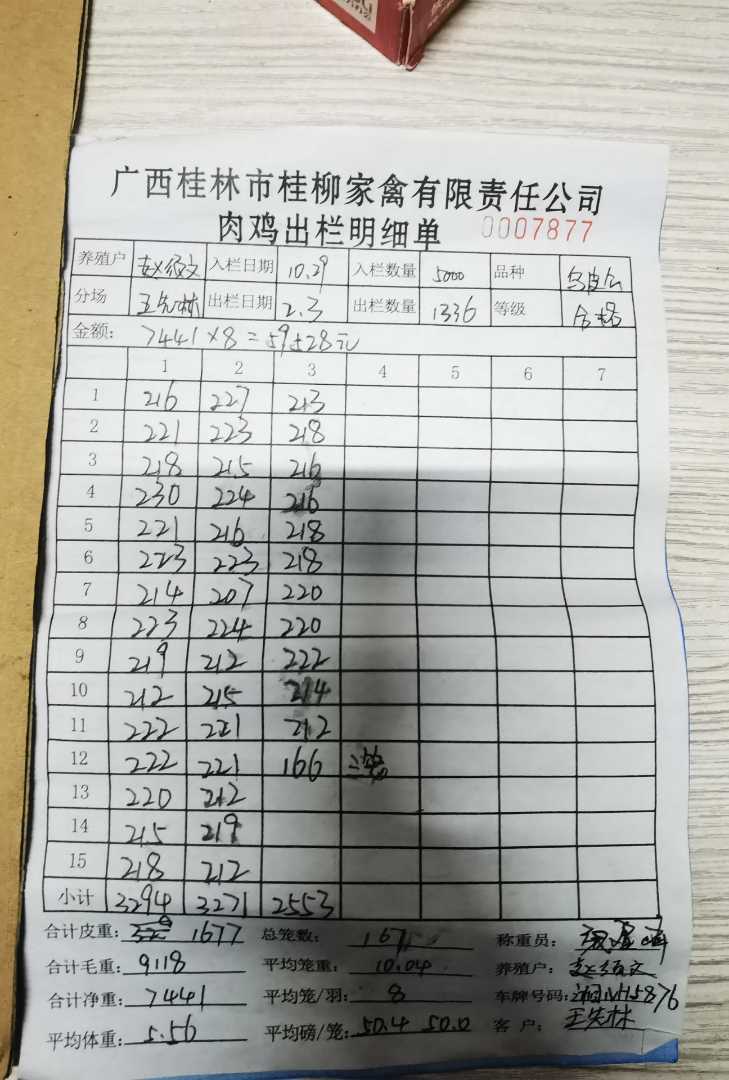 广西桂林市桂柳家禽有限责任公司
肉鸡出栏明细单 0007877
养殖户 入栏日期 10.29 入栏数量 5000 品种
分场 王先林 出栏日期 2.3 出栏数量 1336 等级 合格
金额: 7441×8=59528元
1 2 3 4 5 6 7
1 216 227 213
2 221 223 218
3 218 215 216
4 230 224 216
5 221 216 218
6 223 223 218
7 214 207 220
8 223 224 220
9 219 212 222
10 212 215 214
11 222 221 212
12 222 221 166
13 220 212
14 215 219
15 218 212
小计 3294 3271 2553
合计皮重: 1677 总笼数: 167 称重员:
合计毛重: 9118 平均笼重: 10.04 养殖户:
合计净重: 7441 平均笼/羽: 8 车牌号码:
平均体重: 5.56 平均磅/笼: 50.4 50.0 客户: 王先林